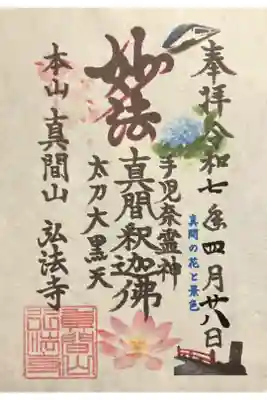 奉拝 令和七年四月廿八日
真間の花と景色
手児奈霊神
妙法
真間釈迦佛
太刀大黒天
本山 真間山 弘法寺
真間山
弘法寺